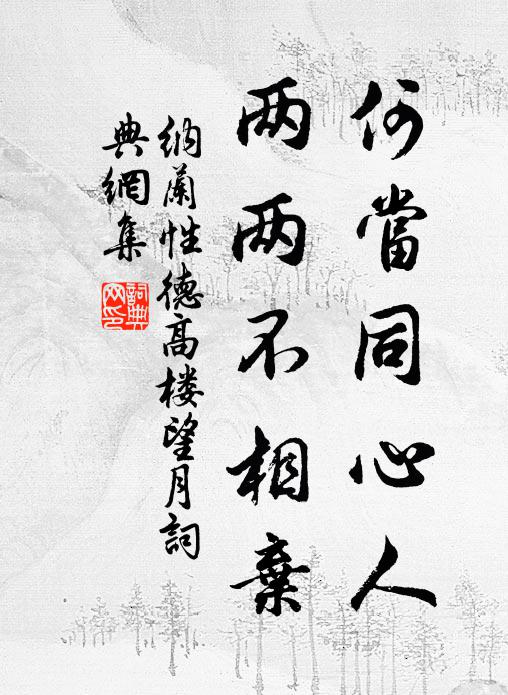 何當同心人
两两不相棄
納蘭性德高楼望月詞
典網集
詞典網印